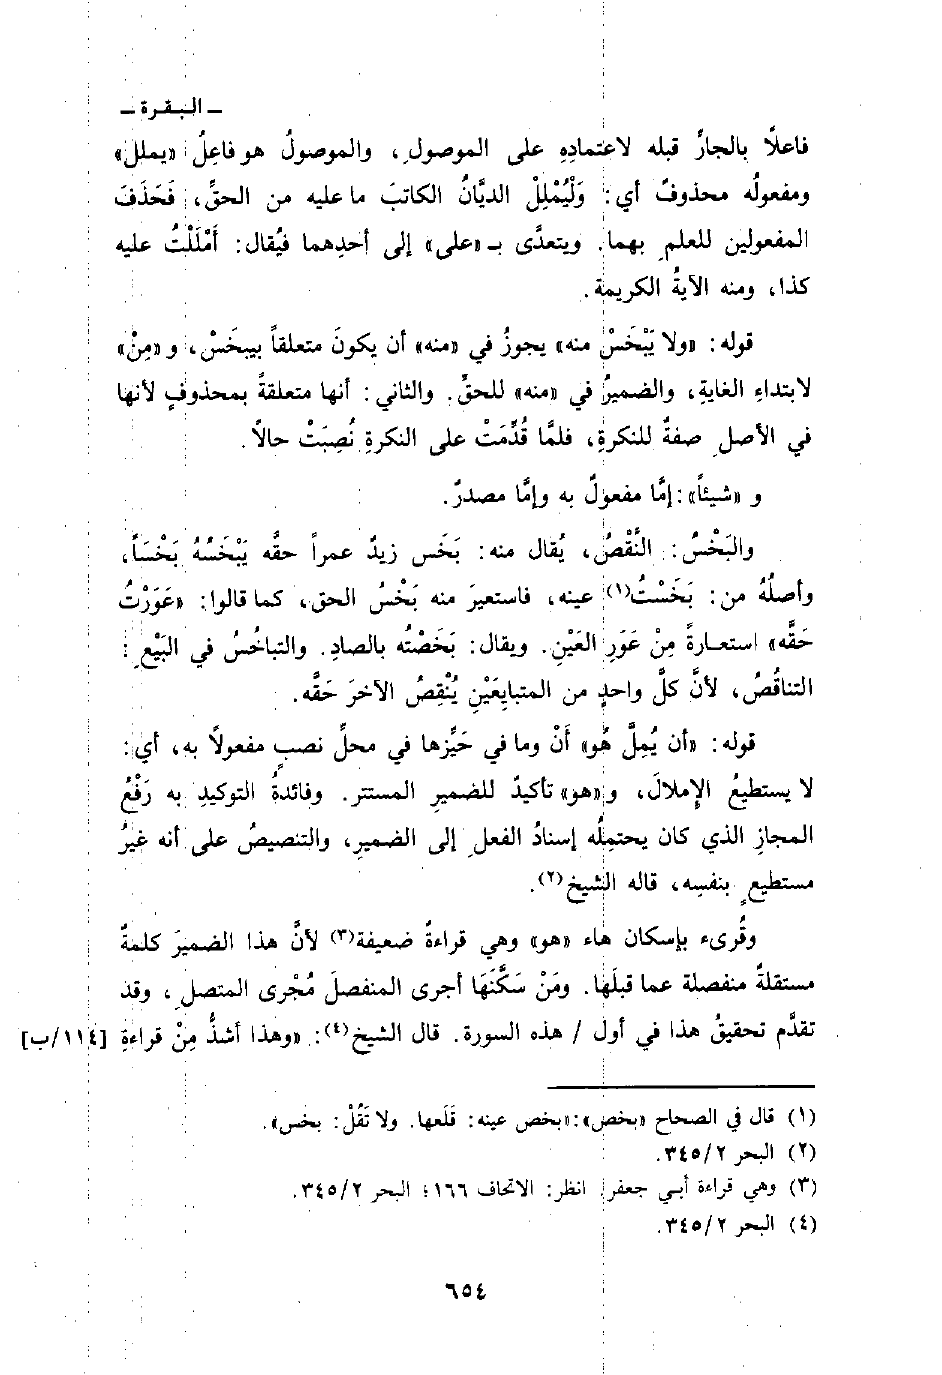 ـ البقرة ـ
فاعلًا بالجارِّ قبله لاعتمادِهِ على الموصول، والموصولُ هو فاعِلُ «يملل»
ومفعولُه محذوفٌ أي: وَلْيُمْلِلْ الديَّانُ الكاتبَ ما عليه من الحقِّ، فَحَذَفَ
المفعولين للعلمِ بهما. ويتعدَّى بـ «على» إلى أحدِهما فيُقال: أَمْلَلْتُ عليه
كذا، ومنه الآيةُ الكريمة.
قوله: «ولا يَبْخَسْ منه» يجوزُ في «منه» أن يكونَ متعلقاً بيبخَسْ، و «مِنْ»
لابتداءِ الغايةِ، والضميرُ في «منه» للحقِّ. والثاني: أنها متعلقةٌ بمحذوفٍ لأنها
في الأصلِ صفةٌ للنكرةِ، فلمَّا قُدِّمَتْ على النكرةِ نُصِبَتْ حالًا.
و «شيئاً»: إمَّا مفعولٌ به وإمَّا مصدرٌ.
والبَخْسُ: النَّقْصُ، يُقال منه: بَخَس زيدٌ عمراً حقَّه يَبْخَسُهُ بَخْسَاً،
وأصلُهُ من: بَخَسْتُ(١) عينه، فاستعيرَ منه بَخْسُ الحق، كما قالوا: «عَوَرْتُ
حَقَّه» استعارةً مِنْ عَوَرِ العَيْنِ. ويقال: بَخَصْتُه بالصادِ. والتباخُسُ في البَيْعِ:
التناقُصُ، لأنَّ كلَّ واحدٍ من المتبايِعَيْنِ يُنْقِصُ الآخرَ حَقَّه.
قوله: «أن يُمِلَّ هُو» أَنْ وما في حَيِّزها في محلِّ نصبٍ مفعولًا به، أي:
لا يستطيعُ الإملالَ، و«هو» تأكيدٌ للضميرِ المستتر. وفائدةُ التوكيدِ به رَفْعُ
المجازِ الذي كان يحتمِلُه إسنادُ الفعلِ إلى الضميرِ، والتنصيصُ على أنه غيرُ
مستطيعٍ بنفسِه، قاله الشيخ(٢).
وقُرىء بإسكان هاء «هو» وهي قراءةٌ ضعيفة(٣) لأنَّ هذا الضميرَ كلمةٌ
مستقلةٌ منفصلة عما قبلَها. ومَنْ سَكَّنَهَا أجرى المنفصلَ مُجْرى المتصلِ، وقد
تقدَّم تحقيقُ هذا في أول / هذه السورة. قال الشيخ(٤): «وهذا أشذُّ مِنْ قراءةِ [١١٤/ب]
(١) قال في الصحاح «بخص»: «بخص عينه: قَلَعها. ولا تَقُلْ: بخس».
(٢) البحر ٣٤٥/٢.
(٣) وهي قراءة أبي جعفر. انظر: الاتحاف ١٦٦؛ البحر ٣٤٥/٢.
(٤) البحر ٣٤٥/٢.
٦٥٤